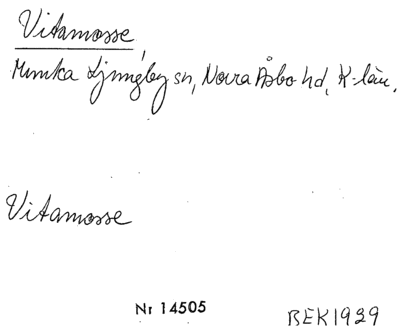 Vitamosse,
Munka Ljungby sn, Norra Åsbo hd, K-län.
Vitamosse
Nr 14505
BEK1929